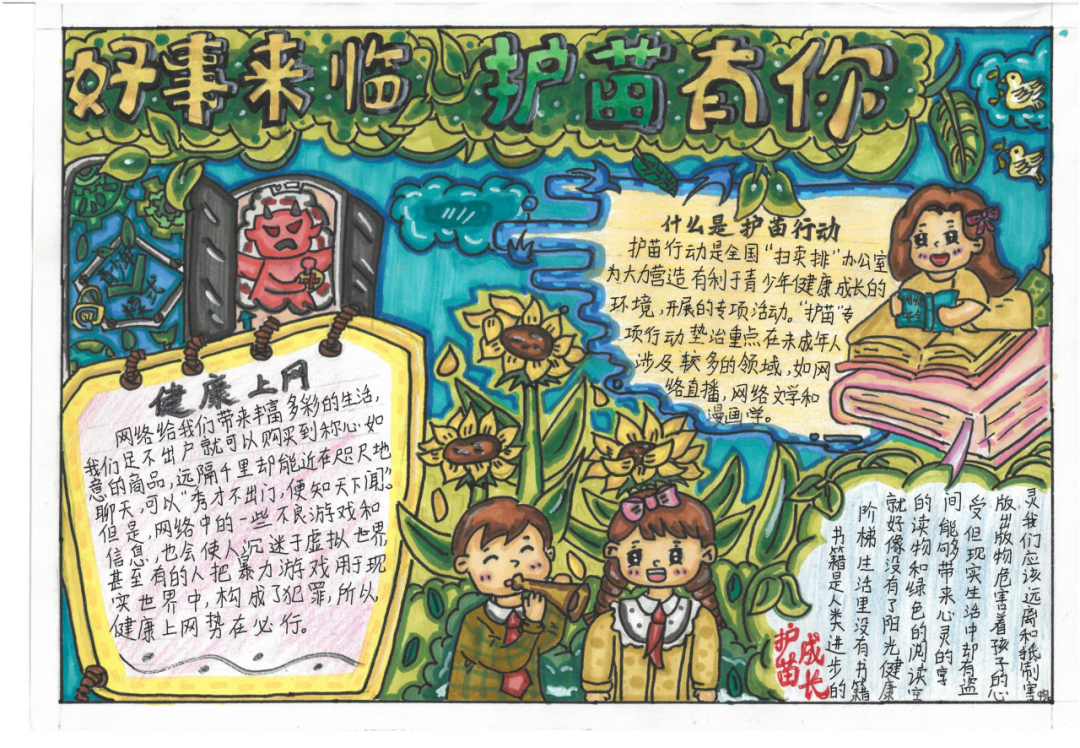 好事来临 护苗有你
什么是护苗行动
护苗行动是全国“扫卖排”办公室
为大力营造有利于青少年健康成长的
环境,开展的专项活动。“护苗”专
项行动垫治重点在未成年人
涉及较多的领域,如网
络直播,网络文学和
漫画学。
健康上网
网络给我们带来丰富多彩的生活,
我们足不出户就可以购买到称心如
意的商品,远隔千里却能近在咫尺地
聊天,可以“秀才不出门,便知天下闻”。
但是,网络中的一些不良游戏和
信息,也会使人沉迷于虚拟世界
甚至有的人把暴力游戏用于现
实世界中,构成了犯罪,所以
健康上网势在必行。
书籍是人类进步的
阶梯生活里没有书籍
就好像没有了阳光健康
的读物和绿色的阅读空
间能够带来心灵的享
受但现实生活中却有盗
版出版物危害着孩子的心
灵我们应该远离和抵制害
护苗
成长